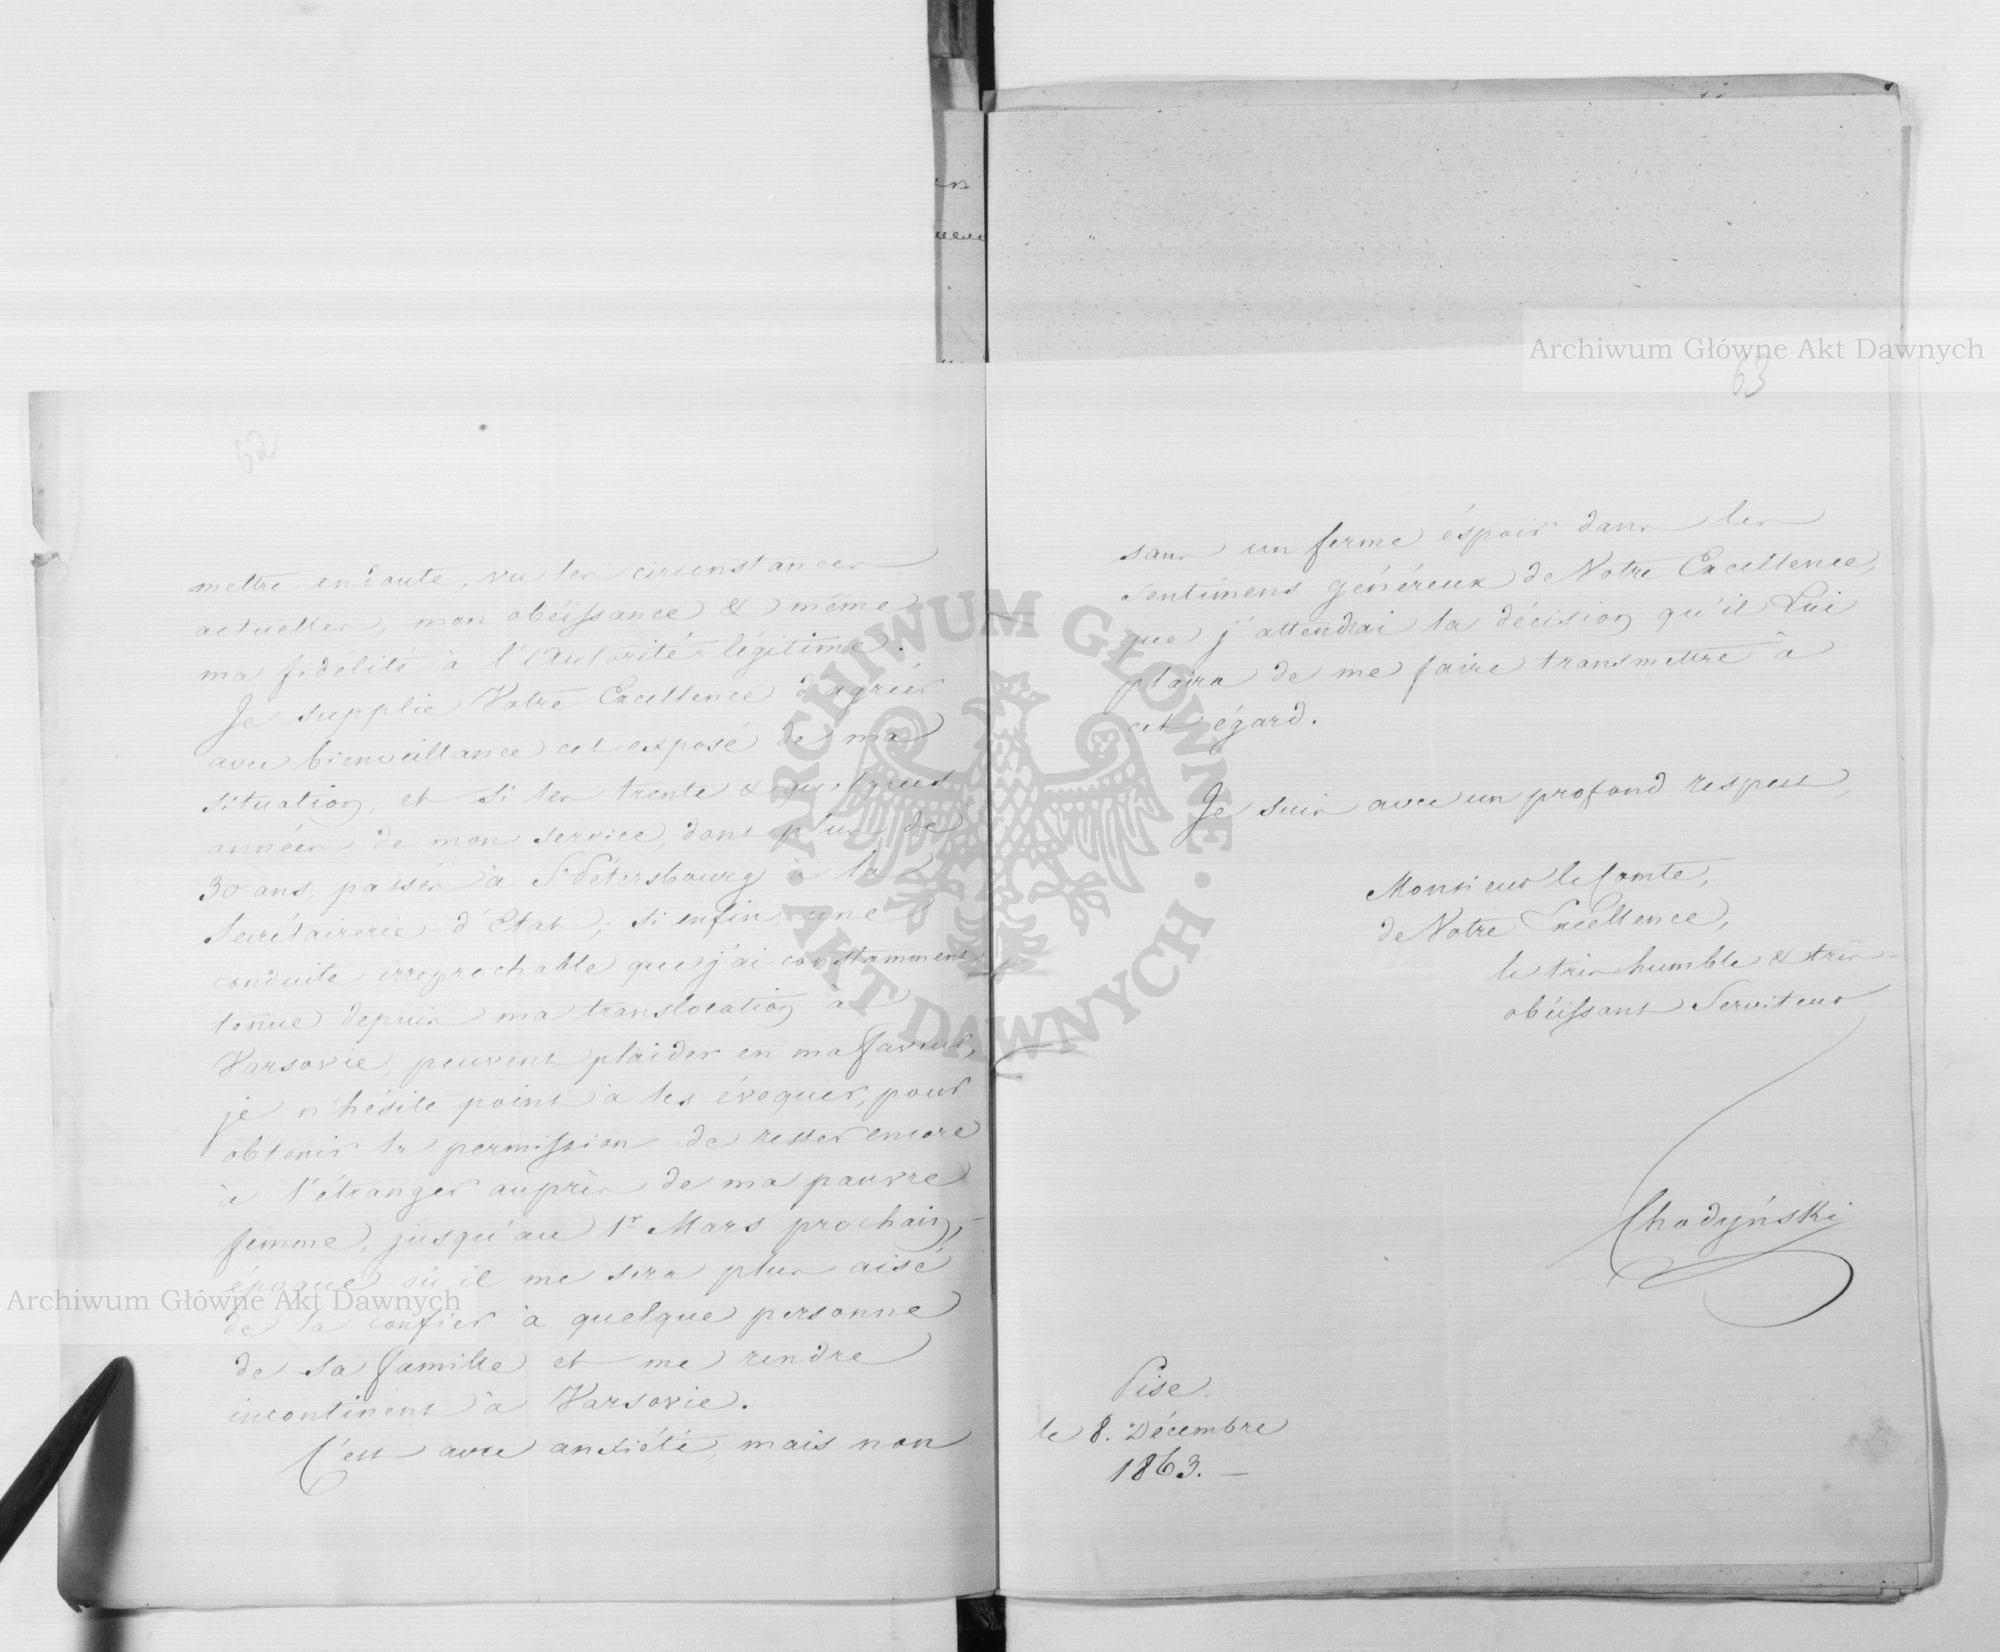 62
mettre en doute, vu les circonstances
actuelles, mon obéissance & même
ma fidélité à l'Autorité légitime.
Je supplie Votre Excellence d'agréer
avec bienveillance cet exposé de ma
situation, et si les trente & quelques
années de mon service, dont plus de
30 ans, passés à St Pétersbourg à la
Secrétairerie d'Etat; si enfin une
conduite irreprochable que j'ai constamment
tenue depuis ma translocation à
Varsovie, peuvent plaider en ma faveur,
je n'hésite point à les évoquer, pour
obtenir la permission de rester encore
à l'étranger auprès de ma pauvre
femme, jusqu'au 1r Mars prochain,
époque où il me sera plus aisé
de la confier à quelque personne
de sa famille et me rendre
incontinent à Varsovie.
C'est avec anxiété, mais non
63
sans un ferme éspoir dans les
sentimens généreux de Votre Excellence,
que j'attendrai la décision qu'il Lui
plaira de me faire transmettre à
cet égard.
Je suis avec un profond respect,
Monsieur le Comte,
de Votre Excellence,
le très humble & très
obéissant Serviteur
Chodyński
Pise
le 8. Décembre
1863.
Archiwum Główne Akt Dawnych
Archiwum Główne Akt Dawnych
ARCHIWUM GŁÓWNE · AKT DAWNYCH ·